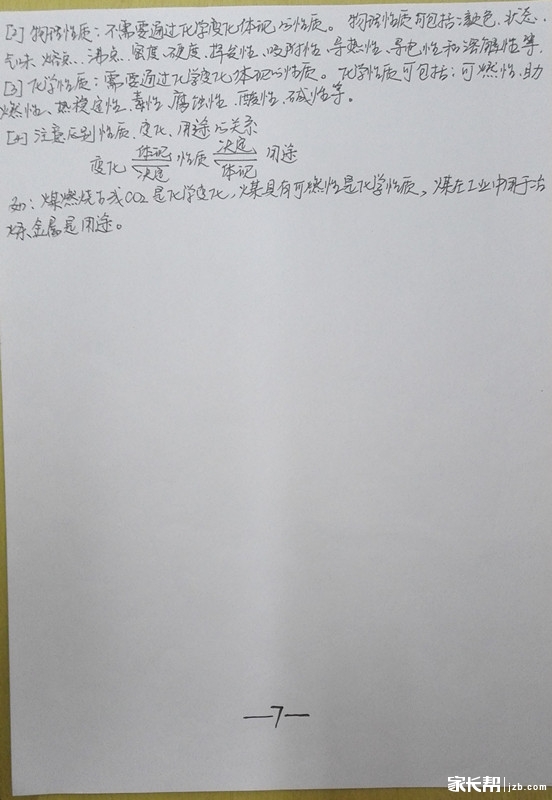 [2] 物理性质：不需要通过化学变化体现的性质。物理性质可包括：颜色、状态、
气味、熔点、沸点、密度、硬度、挥发性、吸附性、导热性、导电性和溶解性等.
[3] 化学性质：需要通过化学变化体现的性质。化学性质可包括：可燃性、助
燃性、热稳定性、毒性、腐蚀性、酸性、碱性等。
[4] 注意区别性质、变化、用途的关系
变化 体现 决定 性质 决定 体现 用途
如：煤燃烧生成CO2是化学变化，煤具有可燃性是化学性质，煤在工业中用于冶
炼金属是用途。
—7—
家长帮 jzb.com